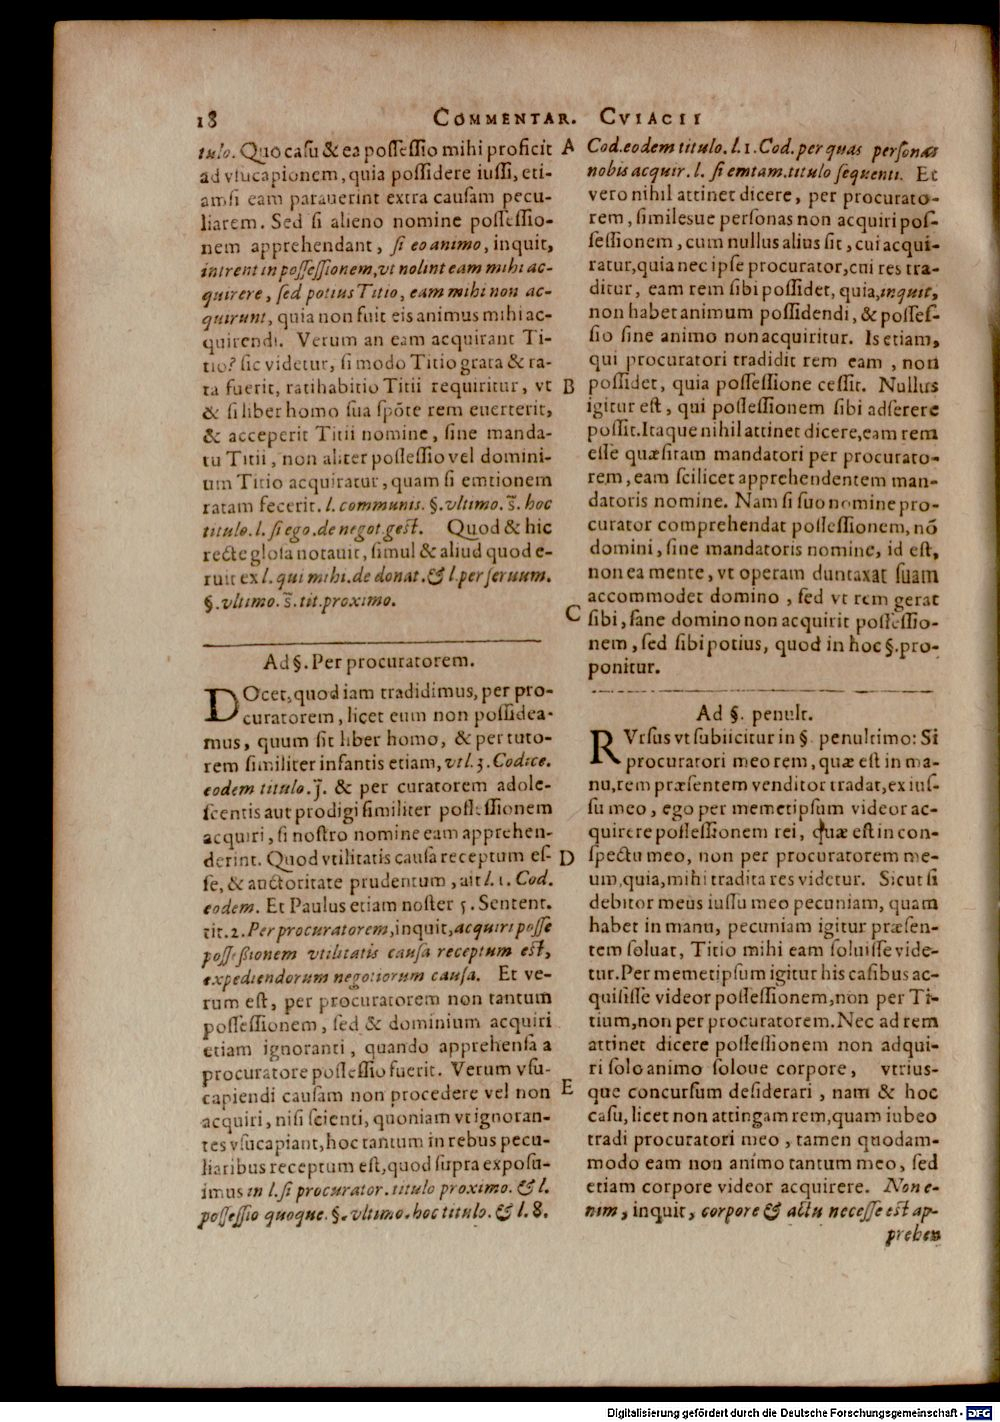 18 COMMENTAR. CVIACII
tulo. Quo casu & ea possessio mihi proficit
ad vsucapionem, quia possidere iussi, eti-
amsi eam parauerint extra causam pecu-
liarem. Sed si alieno nomine possessio-
nem apprehendant, si eo animo, inquit,
intrent in possessionem, vt nolint eam mihi ac-
quirere, sed potius Titio, eam mihi non ac-
quirunt, quia non fuit eis animus mihi ac-
quirendi. Verum an eam acquirant Ti-
tio? sic videtur, si modo Titio grata & ra-
ta fuerit, ratihabitio Titii requiritur, vt
& si liber homo sua spōte rem euerterit,
& acceperit Titii nomine, sine manda-
tu Titii, non aliter possessio vel domini-
um Titio acquiratur, quam si emtionem
ratam fecerit. l. communis. §. vltimo. s̄. hoc
titulo. l. si ego. de negot. gest. Quod & hic
recte glosa notauit, simul & aliud quod e-
ruit ex l. qui mihi. de donat. & l. per seruum.
§. vltimo. s̄. tit. proximo.
Ad §. Per procuratorem.
DOcet, quod iam tradidimus, per pro-
curatorem, licet eum non possidea-
mus, quum sit liber homo, & per tuto-
rem similiter infantis etiam, vt l. 3. Codice.
eodem titulo. J̄. & per curatorem adole-
scentis aut prodigi similiter possessionem
acquiri, si nostro nomine eam apprehen-
derint. Quod vtilitatis causa receptum es-
se, & auctoritate prudentum, ait l. 1. Cod.
eodem. Et Paulus etiam noster 5. Sentent.
tit. 2. Per procuratorem, inquit, acquiri posse
possessionem vtilitatis causa receptum est,
expediendorum negotiorum causa. Et ve-
rum est, per procuratorem non tantum
possessionem, sed & dominium acquiri
etiam ignoranti, quando apprehensa a
procuratore possessio fuerit. Verum vsu-
capiendi causam non procedere vel non
acquiri, nisi scienti, quoniam vt ignoran-
tes vsucapiant, hoc tantum in rebus pecu-
liaribus receptum est, quod supra exposu-
imus in l. si procurator. titulo proximo. & l.
possessio quoque. §. vltimo. hoc titulo. & l. 8.
A
B
C
D
E
Cod. eodem titulo. l. 1. Cod. per quas personas
nobis acquir. l. si emtam. titulo sequenti. Et
vero nihil attinet dicere, per procurato-
rem, similesue personas non acquiri pos-
sessionem, cum nullus alius sit, cui acqui-
ratur, quia nec ipse procurator, cui res tra-
ditur, eam rem sibi possidet, quia, inquit,
non habet animum possidendi, & posses-
sio sine animo non acquiritur. Is etiam,
qui procuratori tradidit rem eam, non
possidet, quia possessione cessit. Nullus
igitur est, qui possessionem sibi adserere
possit. Itaque nihil attinet dicere, eam rem
esse quæsitam mandatori per procurato-
rem, eam scilicet apprehendentem man-
datoris nomine. Nam si suo nomine pro-
curator comprehendat possessionem, nō
domini, sine mandatoris nomine, id est,
non ea mente, vt operam duntaxat suam
accommodet domino, sed vt rem gerat
sibi, sane domino non acquirit possessio-
nem, sed sibi potius, quod in hoc §. pro-
ponitur.
Ad §. penult.
RVrsus vt subiicitur in § penultimo: Si
procuratori meo rem, quæ est in ma-
nu, rem præsentem venditor tradat, ex ius-
su meo, ego per memetipsum videor ac-
quirere possessionem rei, quæ est in con-
spectu meo, non per procuratorem me-
um, quia, mihi tradita res videtur. Sicut si
debitor meus iussu meo pecuniam, quam
habet in manu, pecuniam igitur præsen-
tem soluat, Titio mihi eam soluisse vide-
tur. Per memetipsum igitur his casibus ac-
quisisse videor possessionem, non per Ti-
tium, non per procuratorem. Nec ad rem
attinet dicere possessionem non adqui-
ri solo animo soloue corpore, vtrius-
que concursum desiderari, nam & hoc
casu, licet non attingam rem, quam iubeo
tradi procuratori meo, tamen quodam-
modo eam non animo tantum meo, sed
etiam corpore videor acquirere. Non e-
nim, inquit, corpore & actu necesse est ap-
prehen
Digitalisierung gefördert durch die Deutsche Forschungsgemeinschaft - DFG